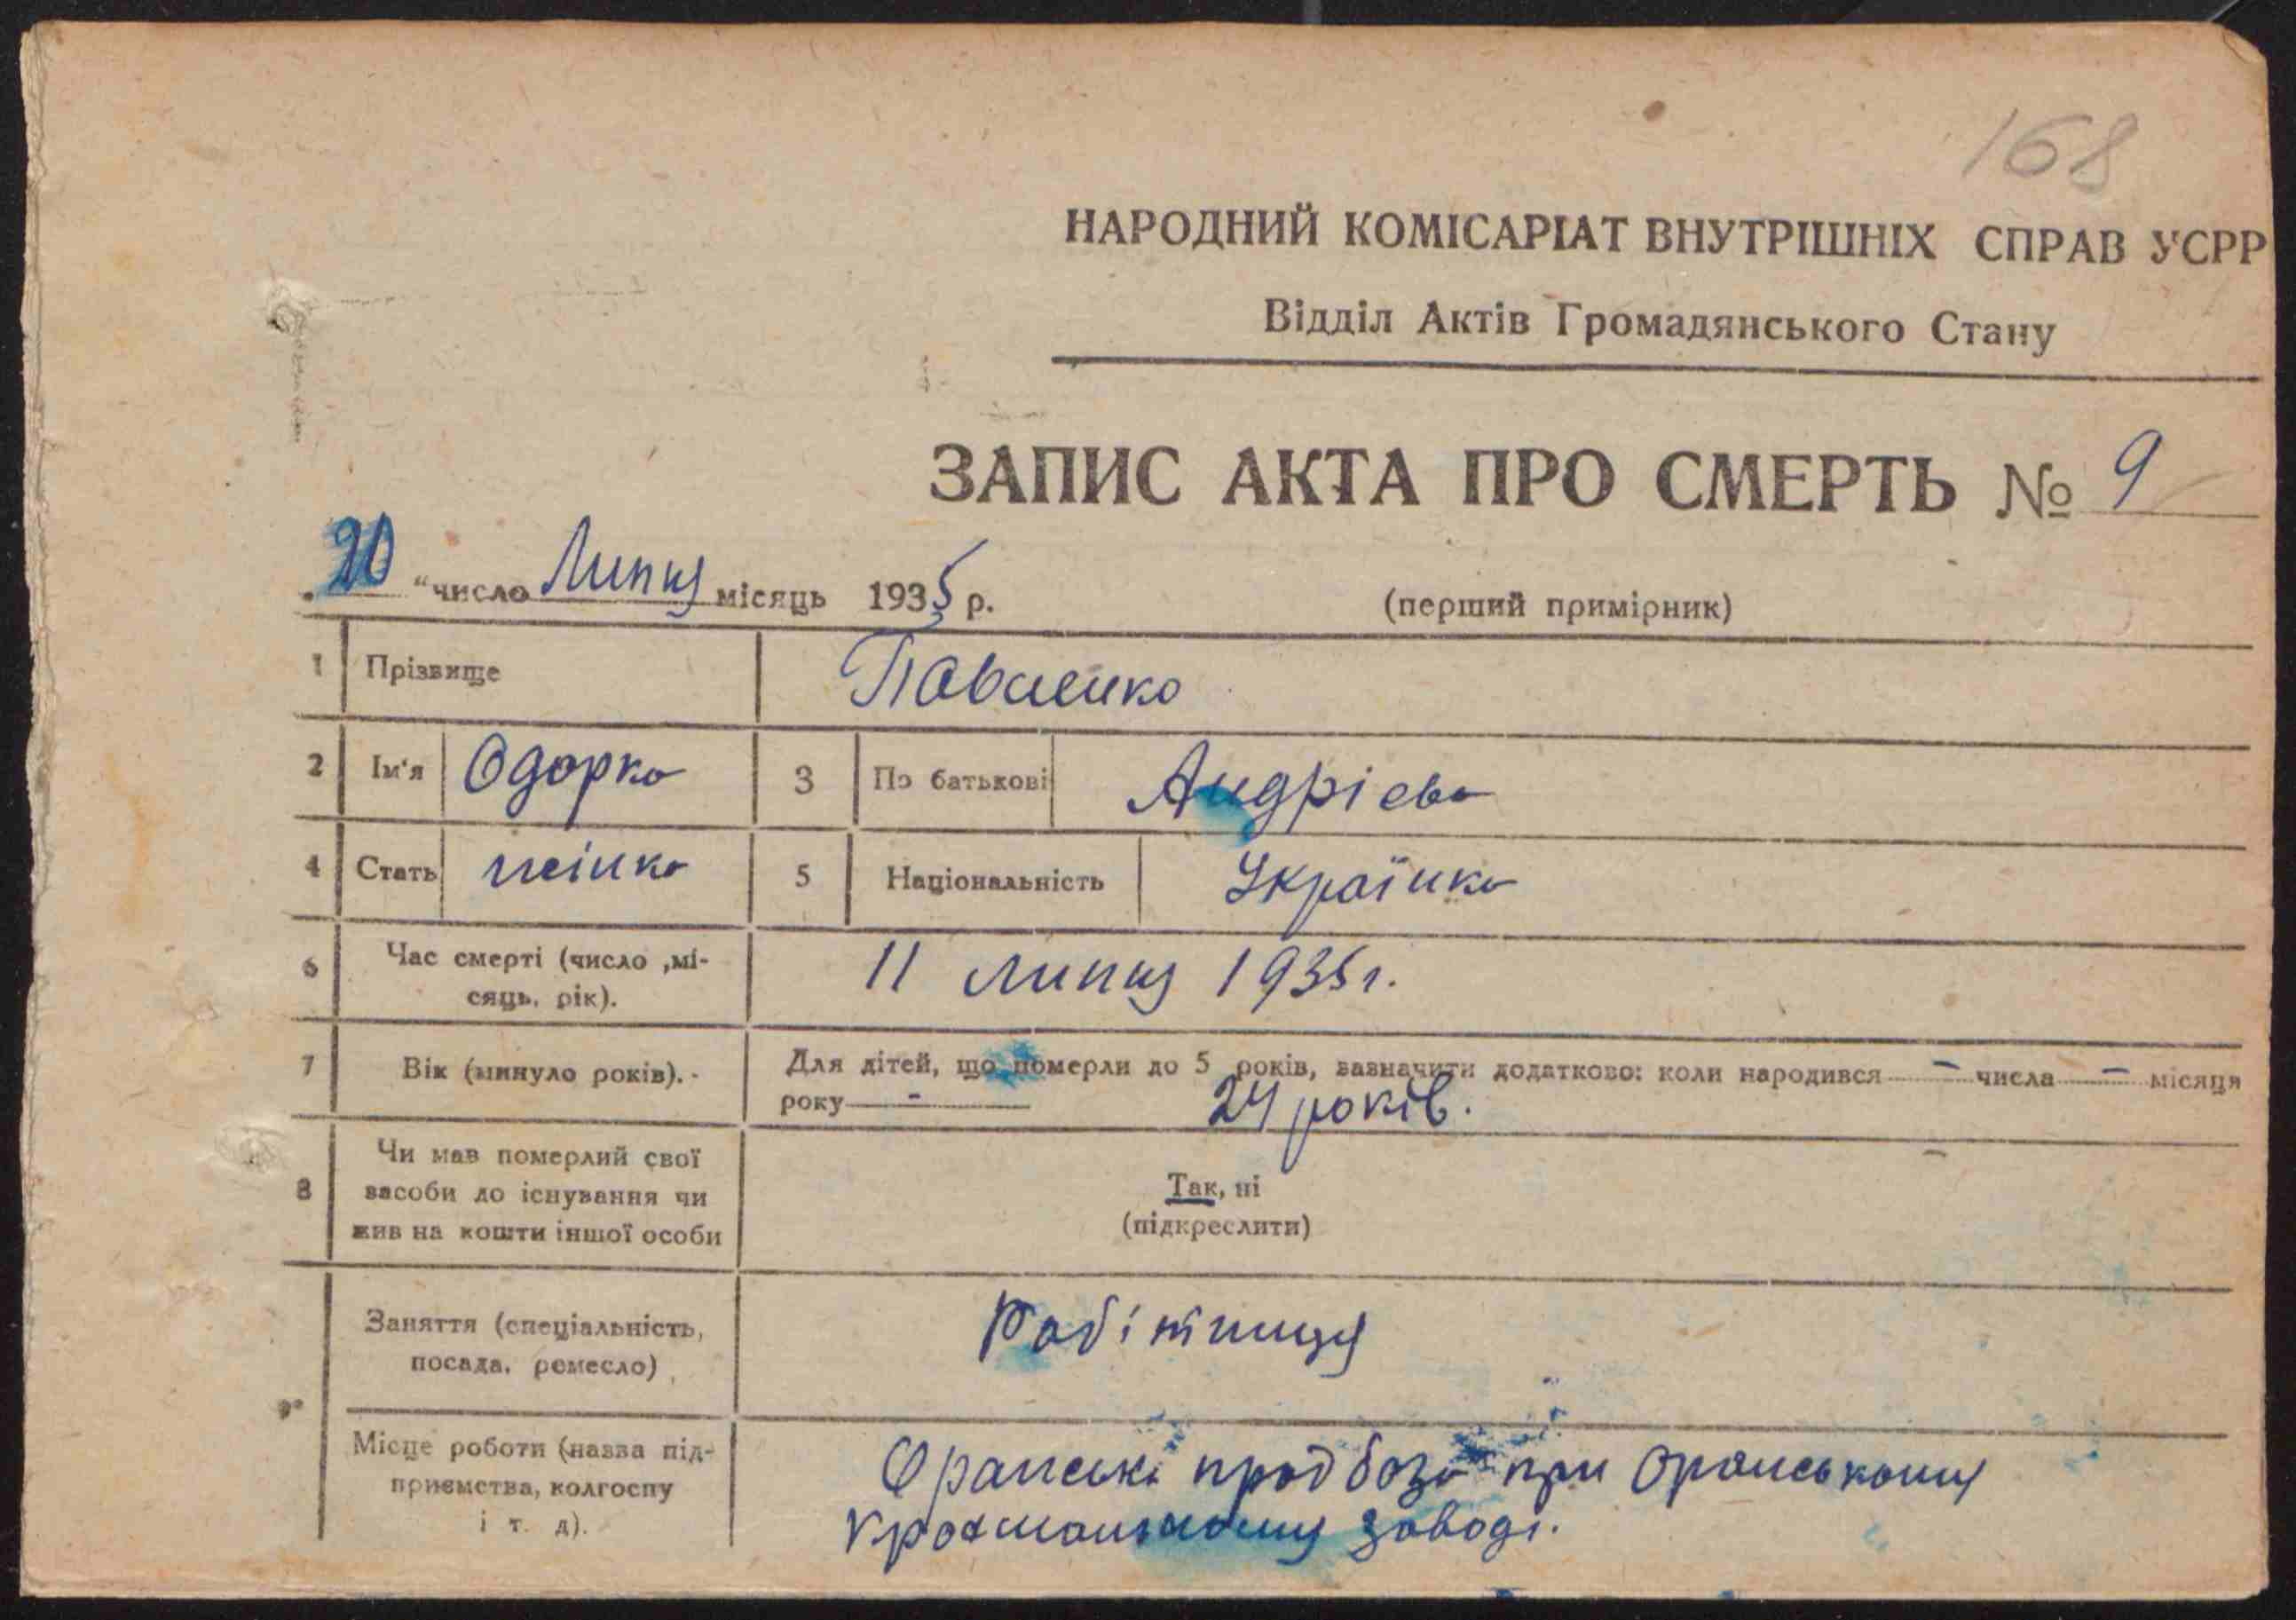 168
НАРОДНИЙ КОМІСАРІАТ ВНУТРІШНІХ СПРАВ УСРР
Відділ Актів Громадянського Стану
ЗАПИС АКТА ПРО СМЕРТЬ № 9
„20“ число Липця місяць 1935 р. (перший примірник)
1 Прізвище Павленко
2 Ім'я Одорка 3 По батькові Андрієва
4 Стать жінка 5 Національність Українка
6 Час смерті (число ,мі-
сяць, рік). 11 липця 1935 г.
7 Вік (минуло років). - Для дітей, що померли до 5 років, зазначити додатково: коли народився - числа - місяця
року - 24 років.
8 Чи мав померлий свої
засоби до існування чи
жив на кошти іншої особи
Так, ні
(підкреслити)
9 Заняття (спеціальність,
посада, ремесло) Робітниця
Місце роботи (назва під-
приємства, колгоспу
і т. д).
продбаза при Оранському
заводі.